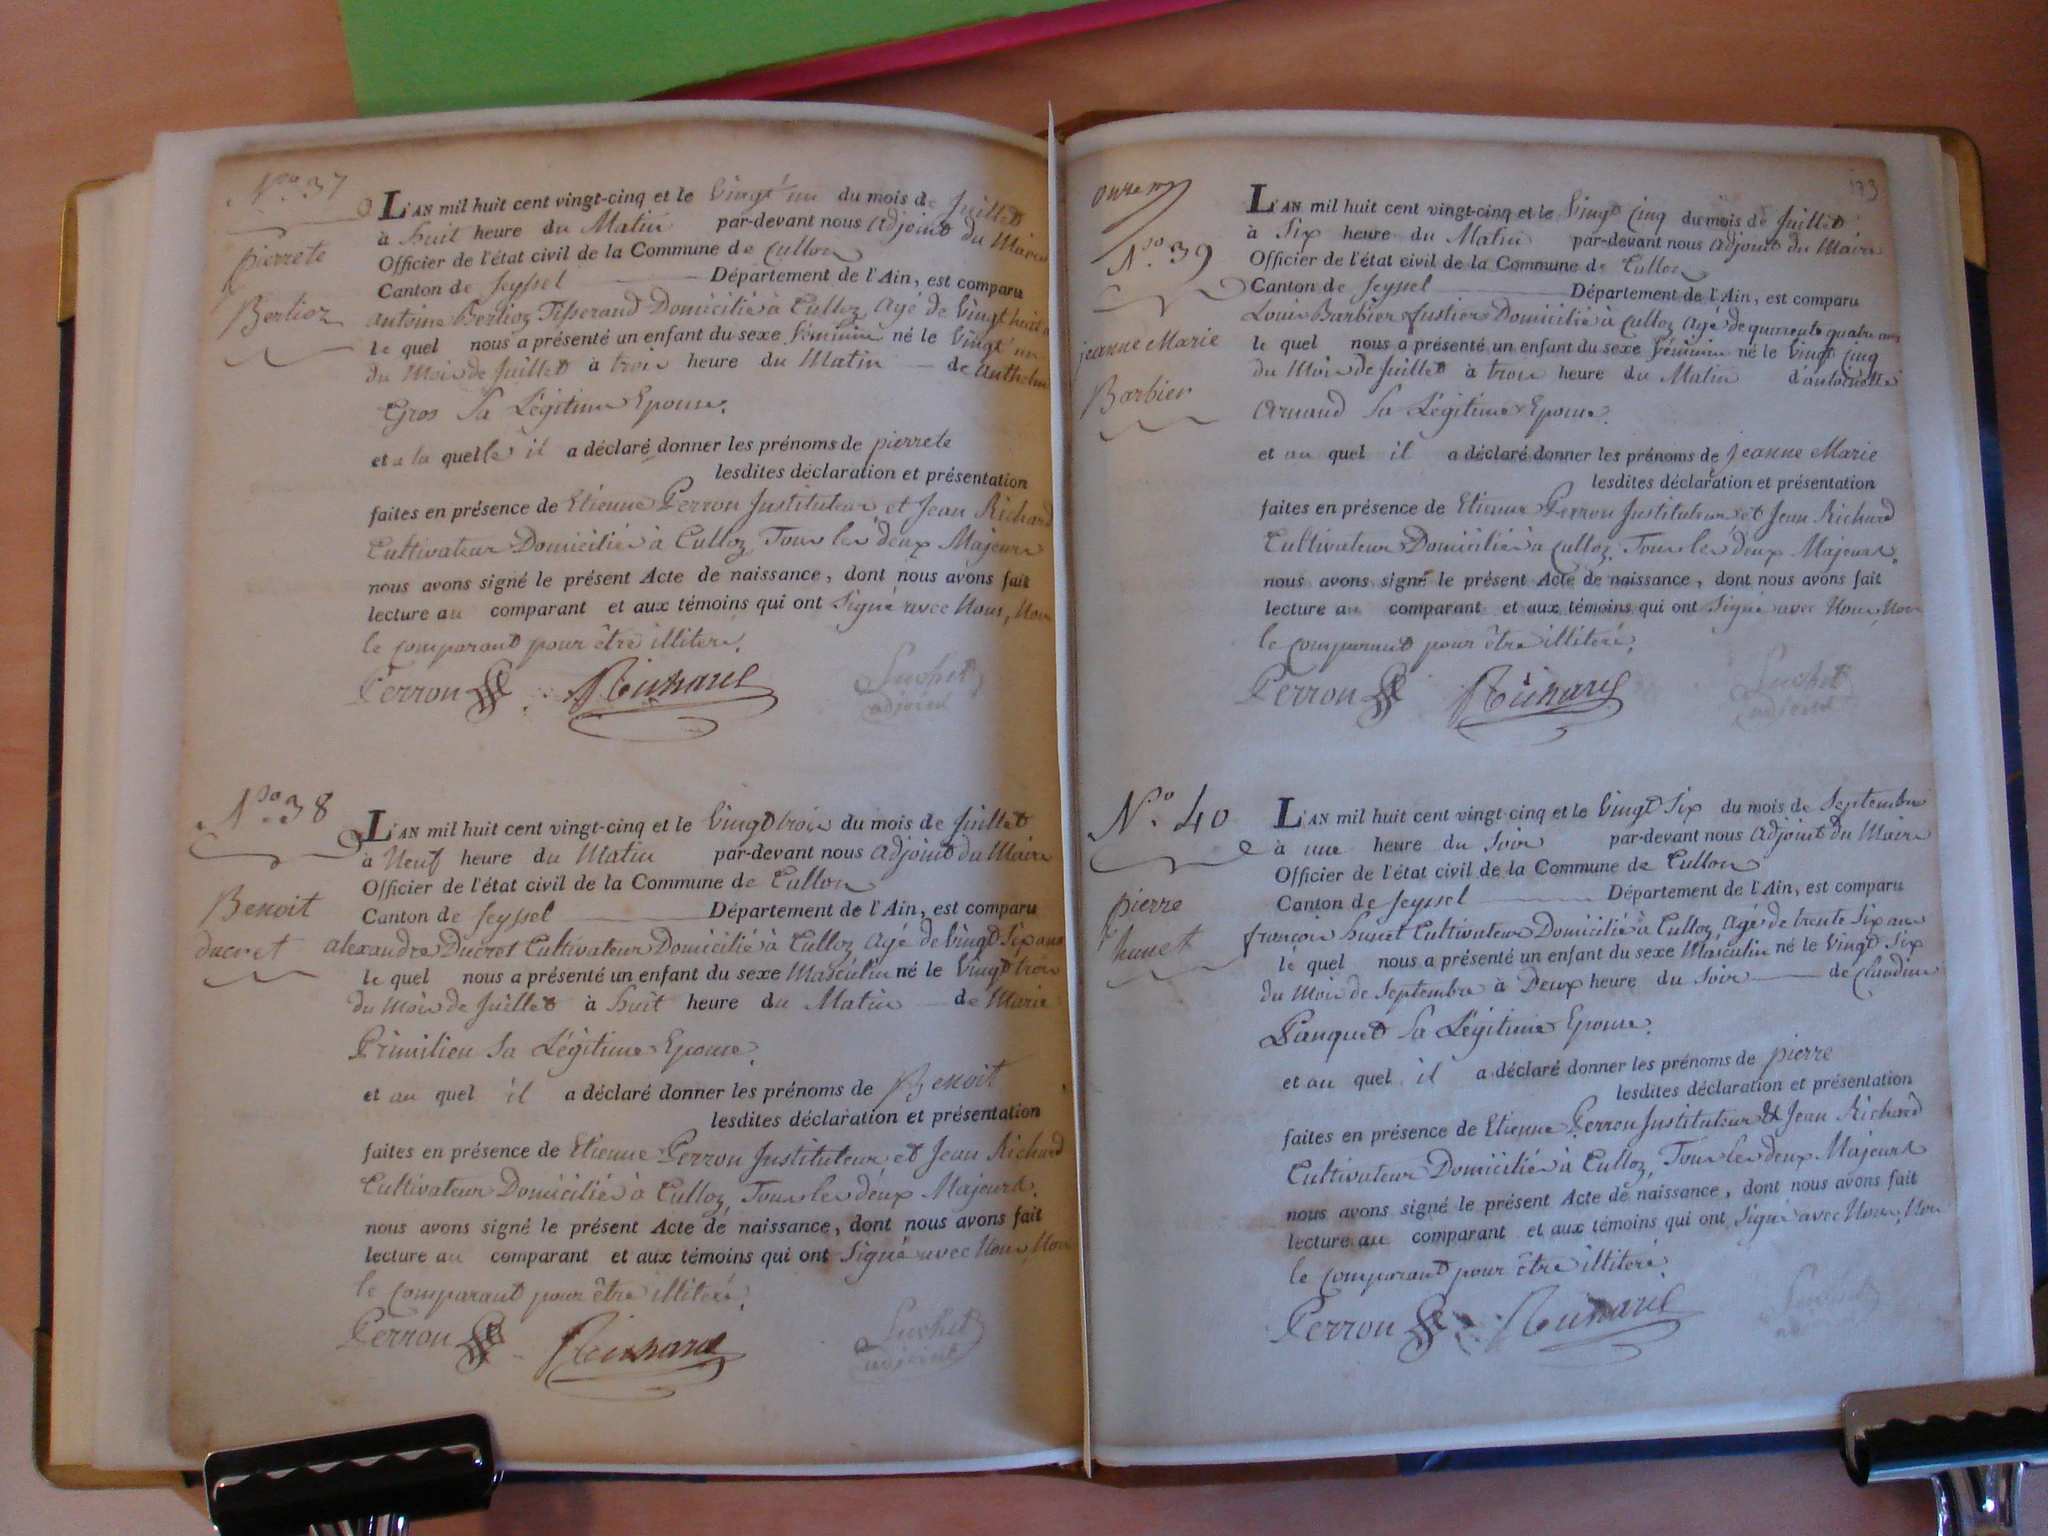 Nro 37
pierrete
Berlioz
L'AN mil huit cent vingt-cinq et le vingt un du mois de juillet
à huit heure du Matin par-devant nous adjoint du Maire
Officier de l'état civil de la Commune de Culloz
Canton de Seyssel Département de l'Ain, est comparu
antoine Berlioz Tisserand Domicilié à Culloz agé de vingt huit
le quel nous a présenté un enfant du sexe féminin né le vingt un
du Mois de juillet à trois heure du Matin de Anthelm
Gros Sa Légitime Epouse.
et a la quelle il a déclaré donner les prénoms de pierrete
lesdites déclaration et présentation
faites en présence de Etienne Perron Instituteur et Jean Richard
Cultivateur Domiciliés à Culloz, Tous les deux Majeurs
nous avons signé le présent Acte de naissance, dont nous avons fait
lecture au comparant et aux témoins qui ont Signé avec Nous, Non
le comparant pour être illiteré.
Perron Richard Luchet
adjoint
Nro 38
Benoit
ducret
L'AN mil huit cent vingt-cinq et le vingt trois du mois de juillet
à Neuf heure du Matin par-devant nous adjoint du Maire
Officier de l'état civil de la Commune de Culloz
Canton de Seyssel Département de l'Ain, est comparu
alexandre Ducret Cultivateur Domicilié à Culloz agé de vingt Six ans
le quel nous a présenté un enfant du sexe Masculin né le vingt trois
du Mois de juillet à huit heure du Matin de Marie
Primilieu Sa Légitime Epouse.
et au quel il a déclaré donner les prénoms de Benoit
lesdites déclaration et présentation
faites en présence de Etienne Perron Instituteur et Jean Richard
Cultivateur Domiciliés à Culloz, Tous les deux Majeurs.
nous avons signé le présent Acte de naissance, dont nous avons fait
lecture au comparant et aux témoins qui ont Signé avec Nous, Non
le comparant pour être illiteré.
Perron Richard Luchet
adjoint
173
Nro 39
jeanne Marie
Barbier
L'AN mil huit cent vingt-cinq et le vingt cinq du mois de juillet
à Six heure du Matin par-devant nous adjoint du Maire
Officier de l'état civil de la Commune de Culloz
Canton de Seyssel Département de l'Ain, est comparu
Louis Barbier Domicilié à Culloz agé de quarente quatre ans
le quel nous a présenté un enfant du sexe féminin né le vingt cinq
du Mois de juillet à trois heure du Matin d'antoinette
Arnaud Sa Légitime Epouse.
et au quel il a déclaré donner les prénoms de jeanne Marie
lesdites déclaration et présentation
faites en présence de Etienne Perron Instituteur et Jean Richard
Cultivateur Domiciliés à Culloz. Tous les deux Majeurs.
nous avons signé le présent Acte de naissance, dont nous avons fait
lecture au comparant et aux témoins qui ont Signé avec Nous, Non
le comparant pour être illiteré.
Perron Richard Luchet
adjoint
No. 40
pierre
hunet
L'AN mil huit cent vingt-cinq et le vingt Six du mois de Septembre
à une heure du Soir par-devant nous adjoint du Maire
Officier de l'état civil de la Commune de Culloz
Canton de Seyssel Département de l'Ain, est comparu
françois hunet Cultivateur Domicilié à Culloz, agé de trente Six ans
le quel nous a présenté un enfant du sexe Masculin né le vingt Six
du Mois de Septembre à Deux heure du Soir de Claudine
Panquet Sa Légitime Epouse.
et au quel il a déclaré donner les prénoms de pierre
lesdites déclaration et présentation
faites en présence de Etienne Perron Instituteur & Jean Richard
Cultivateur Domiciliés à Culloz, Tous les deux Majeurs
nous avons signé le présent Acte de naissance, dont nous avons fait
lecture au comparant et aux témoins qui ont Signé avec Nous, Non
le comparant pour être illiteré.
Perron Richard Luchet